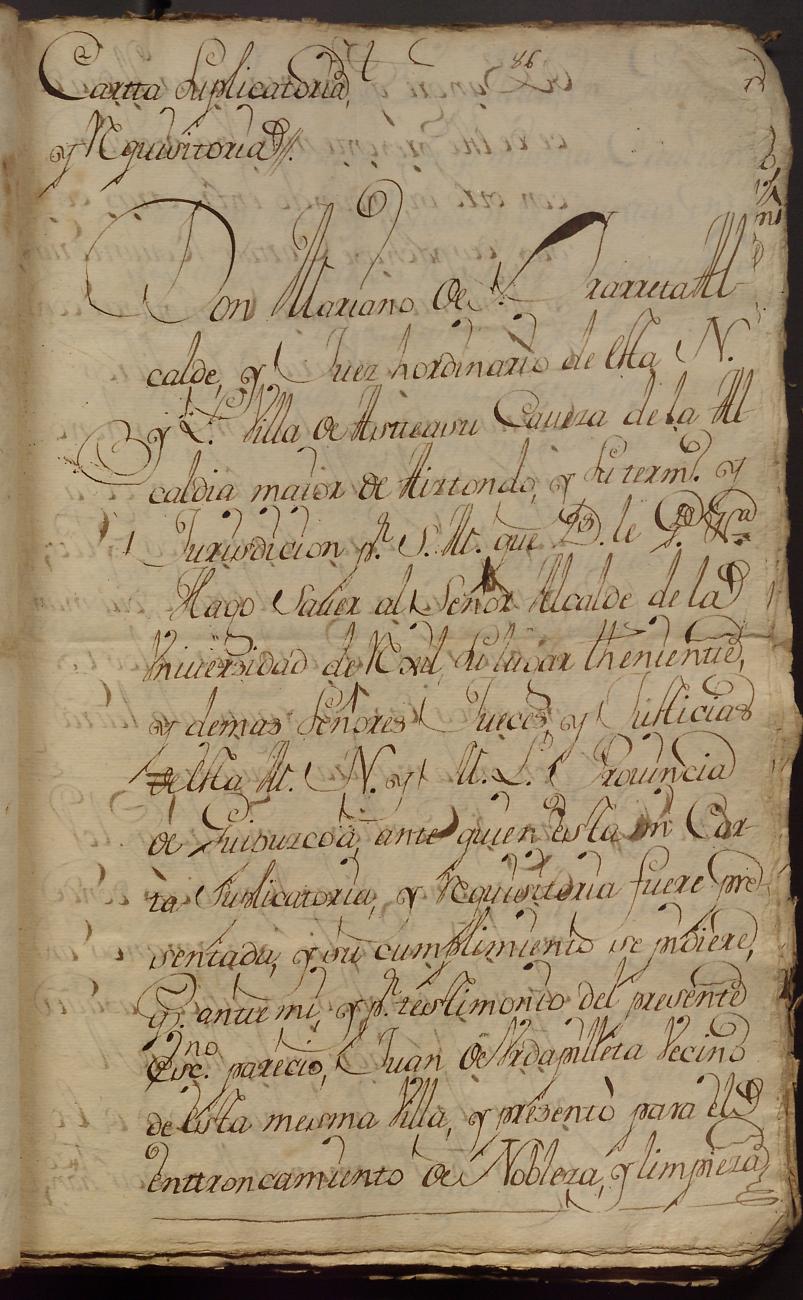 86
Cartta Suplicatoria,
y Rquisitoria //.
Don Mariano de Yrarreta Al-
calde, y Juez hordinario de esta N.
y L. Villa de Asteasu Caveza de la Al
caldia maior de Aiztondo, y su term.º y
Jurisdicion p.r S. M. que D. le g.
Hago saver al Señor Alcalde de la
Vniversidad de Rxil, su lugar theniente,
y demas Señores Jueces, y Justicias
de esta M. N. y M. L. Provincia
de Guipuzcoa, ante quien esta mi Car-
ta Suplicatoria, y Rquisitoria fuere pre
sentada, y su cumplimiento se pidiere,
q. ante mi, y p.r testimonio del presente
Esc.no parecio, Juan de Vrdapilleta Vecino
de esta mesma Villa, y presentò para el
enttroncamiento de Nobleza, y limpieza